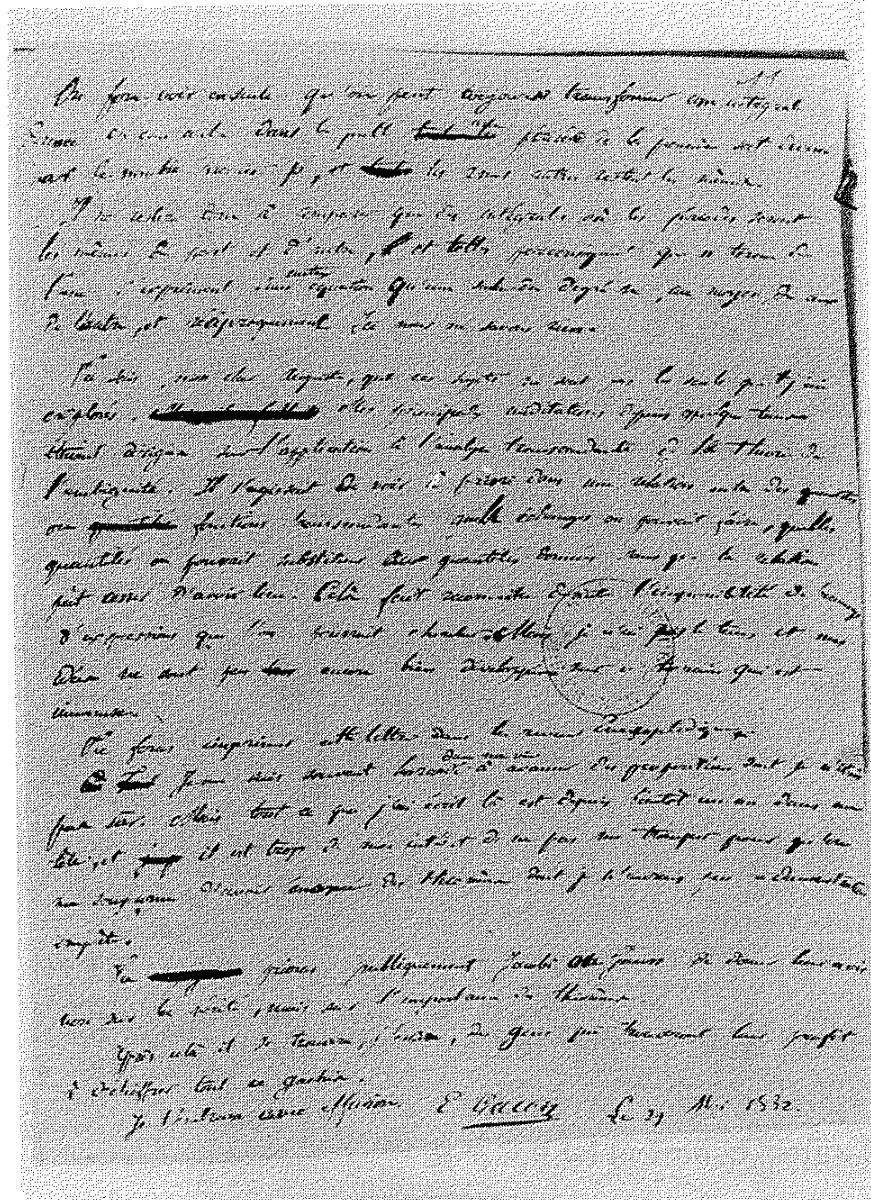 On fera voir ensuite qu'on peut toujours transformer une intégrale
donnée en une autre dans laquelle une période de la première soit divisée
par le nombre premier p, et les 2n-1 autres restent les mêmes.
Il ne restera donc à comparer que des intégrales où les périodes seront
les mêmes de part et d'autre, et telles par conséquent que n termes de
l'une s'expriment sans autre équation qu'une seule du degré n, au moyen de ceux
de l'autre, et réciproquement. Ici nous ne savons rien.
Tu sais, mon cher Auguste, que ces sujets ne sont pas les seuls que j'aie
explorés. Mes principales méditations depuis quelque temps
étaient dirigées sur l'application à l'analyse transcendante de la théorie de
l'ambiguité. Il s'agissait de voir a priori dans une relation entre des quantités
ou fonctions transcendantes quels échanges on pouvait faire, quelles
quantités on pouvait substituer aux quantités données sans que la relation
pût cesser d'avoir lieu. Cela fait reconnaître de suite l'impossibilité de beaucoup
d'expressions que l'on pourrait chercher. Mais je n'ai pas le temps et mes
idées ne sont pas encore bien développées sur ce terrain qui est
immense.
Tu feras imprimer cette lettre dans la revue Encyclopédique.
Je me suis souvent hasardé dans ma vie à avancer des propositions dont je n'étais
pas sûr. Mais tout ce que j'ai écrit là est depuis bientôt un an dans ma
tête, et il est trop de mon intérêt de ne pas me tromper pour qu'on
me soupçonne d'avoir énoncé des théorèmes dont je n'aurais pas la démonstration
complète.
Tu prieras publiquement Jacobi ou Gauss de donner leur avis
non sur la vérité, mais sur l'importance des théorèmes.
Après cela il se trouvera, j'espère, des gens qui trouveront leur profit
à déchiffrer tout ce gachis.
Je t'embrasse avec effusion. E Galois Le 29 Mai 1832.